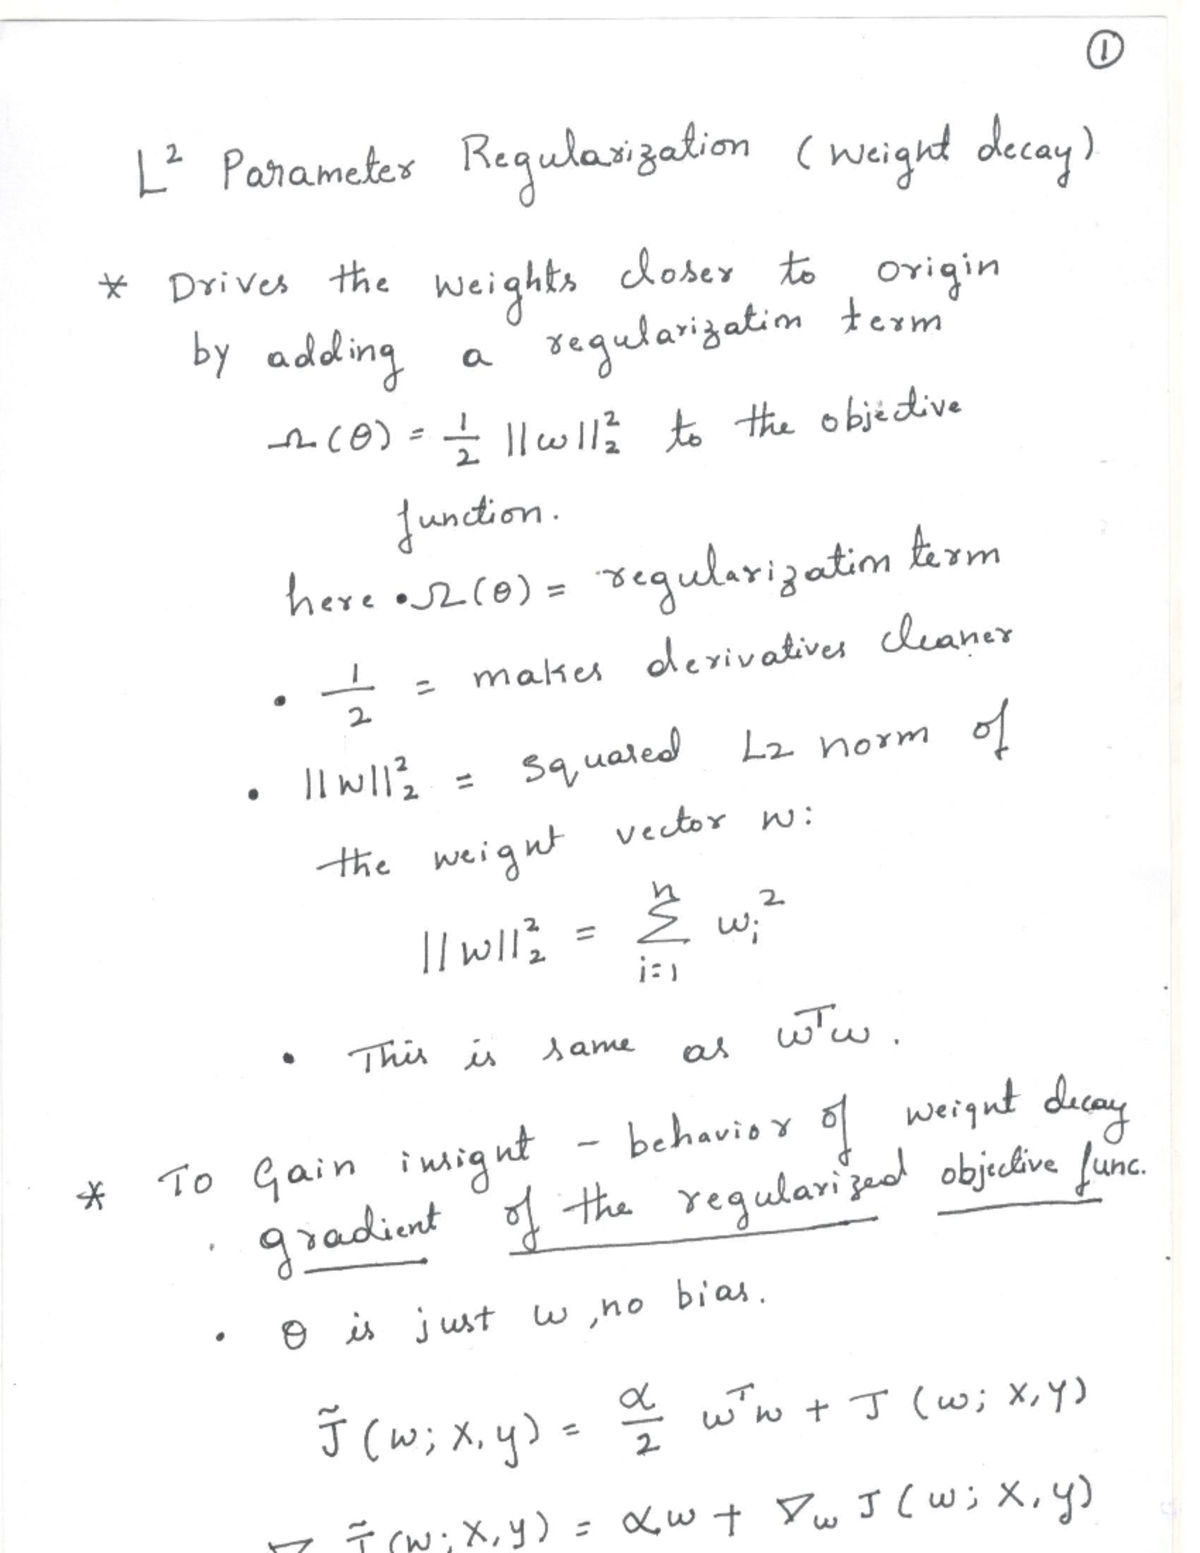 ①
L² Parameter Regularization (weight decay)
* Drives the weights closer to origin
by adding a regularization term
Ω(θ) = 1/2 ||w||₂² to the objective
function.
here • Ω(θ) = regularization term
• 1/2 = makes derivatives cleaner
• ||w||₂² = squared L2 norm of
the weight vector w:
||w||₂² = Σᵢ₌₁ⁿ wᵢ²
• This is same as wᵀw.
* To Gain insight - behavior of weight decay
• gradient of the regularized objective func.
• θ is just w, no bias.
J̃(w; X, y) = α/2 wᵀw + J(w; X, y)
∇ J̃(w; X, y) = αw + ∇w J(w; X, y)